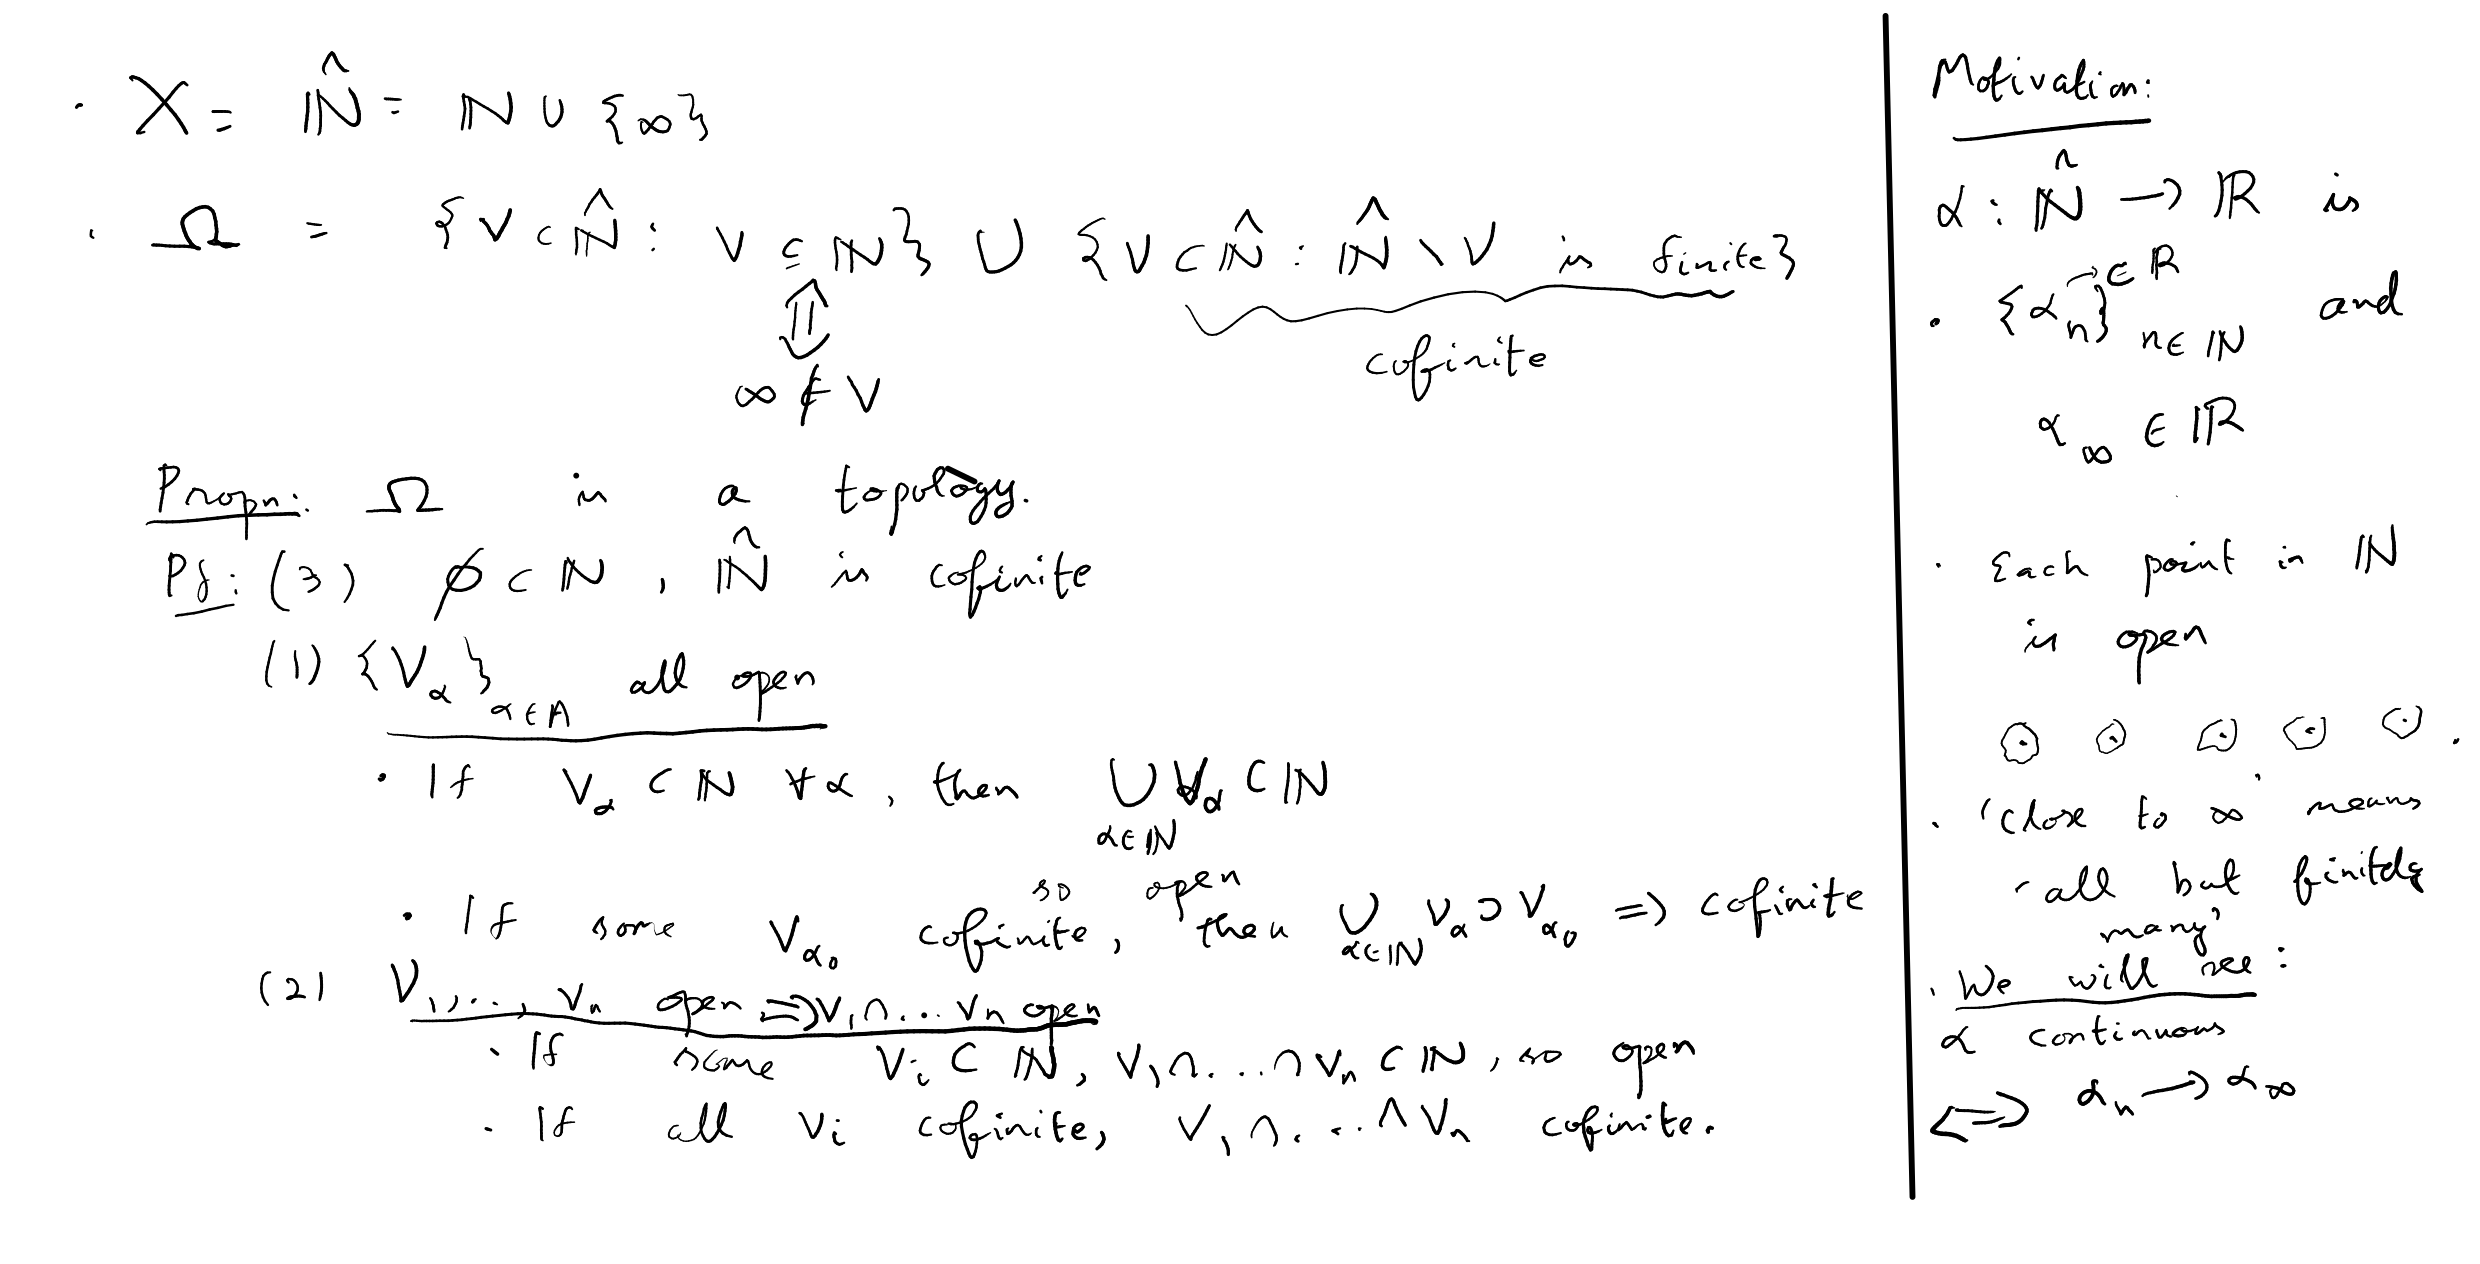 · X = N̂ = ℕ ∪ {∞}
· Ω = {V ⊂ N̂ : V ⊆ ℕ} ∪ {V ⊂ N̂ : N̂ \ V is finite}
⇕
cofinite
∞ ∉ V
Propn: Ω is a topology.
Pf: (3) ∅ ⊂ ℕ , N̂ is cofinite
(1) {V_α}_{α∈A} all open
· If V_α ⊂ ℕ ∀α, then ⋃_{α∈ℕ} V_α ⊂ ℕ
so open
· If some V_{α₀} cofinite, then ⋃_{α∈ℕ} V_α ⊃ V_{α₀} => cofinite
(2) V₁,..., V_n open => V₁∩... V_n open
· If some V_i ⊂ ℕ, V₁∩...∩V_n ⊂ ℕ, so open
· If all V_i cofinite, V₁∩...∩V_n cofinite.
Motivation:
α : N̂ → ℝ is
· {α_n}_{n∈ℕ} → ∈ ℝ and
α_∞ ∈ ℝ
· Each point in ℕ
is open
· 'Close to ∞' means
'all but finitely
many'
· We will see:
α continuous
<=> α_n → α_∞